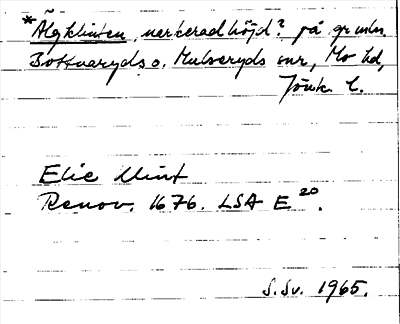 *Älgklinten, uerkerad höjd? på gr mln
Bottnaryds o. Mulseryds snr, Mo hd,
Jönk. l.
Elie Klint
Renov. 1676. LSA E 20.
S. Sv. 1965.